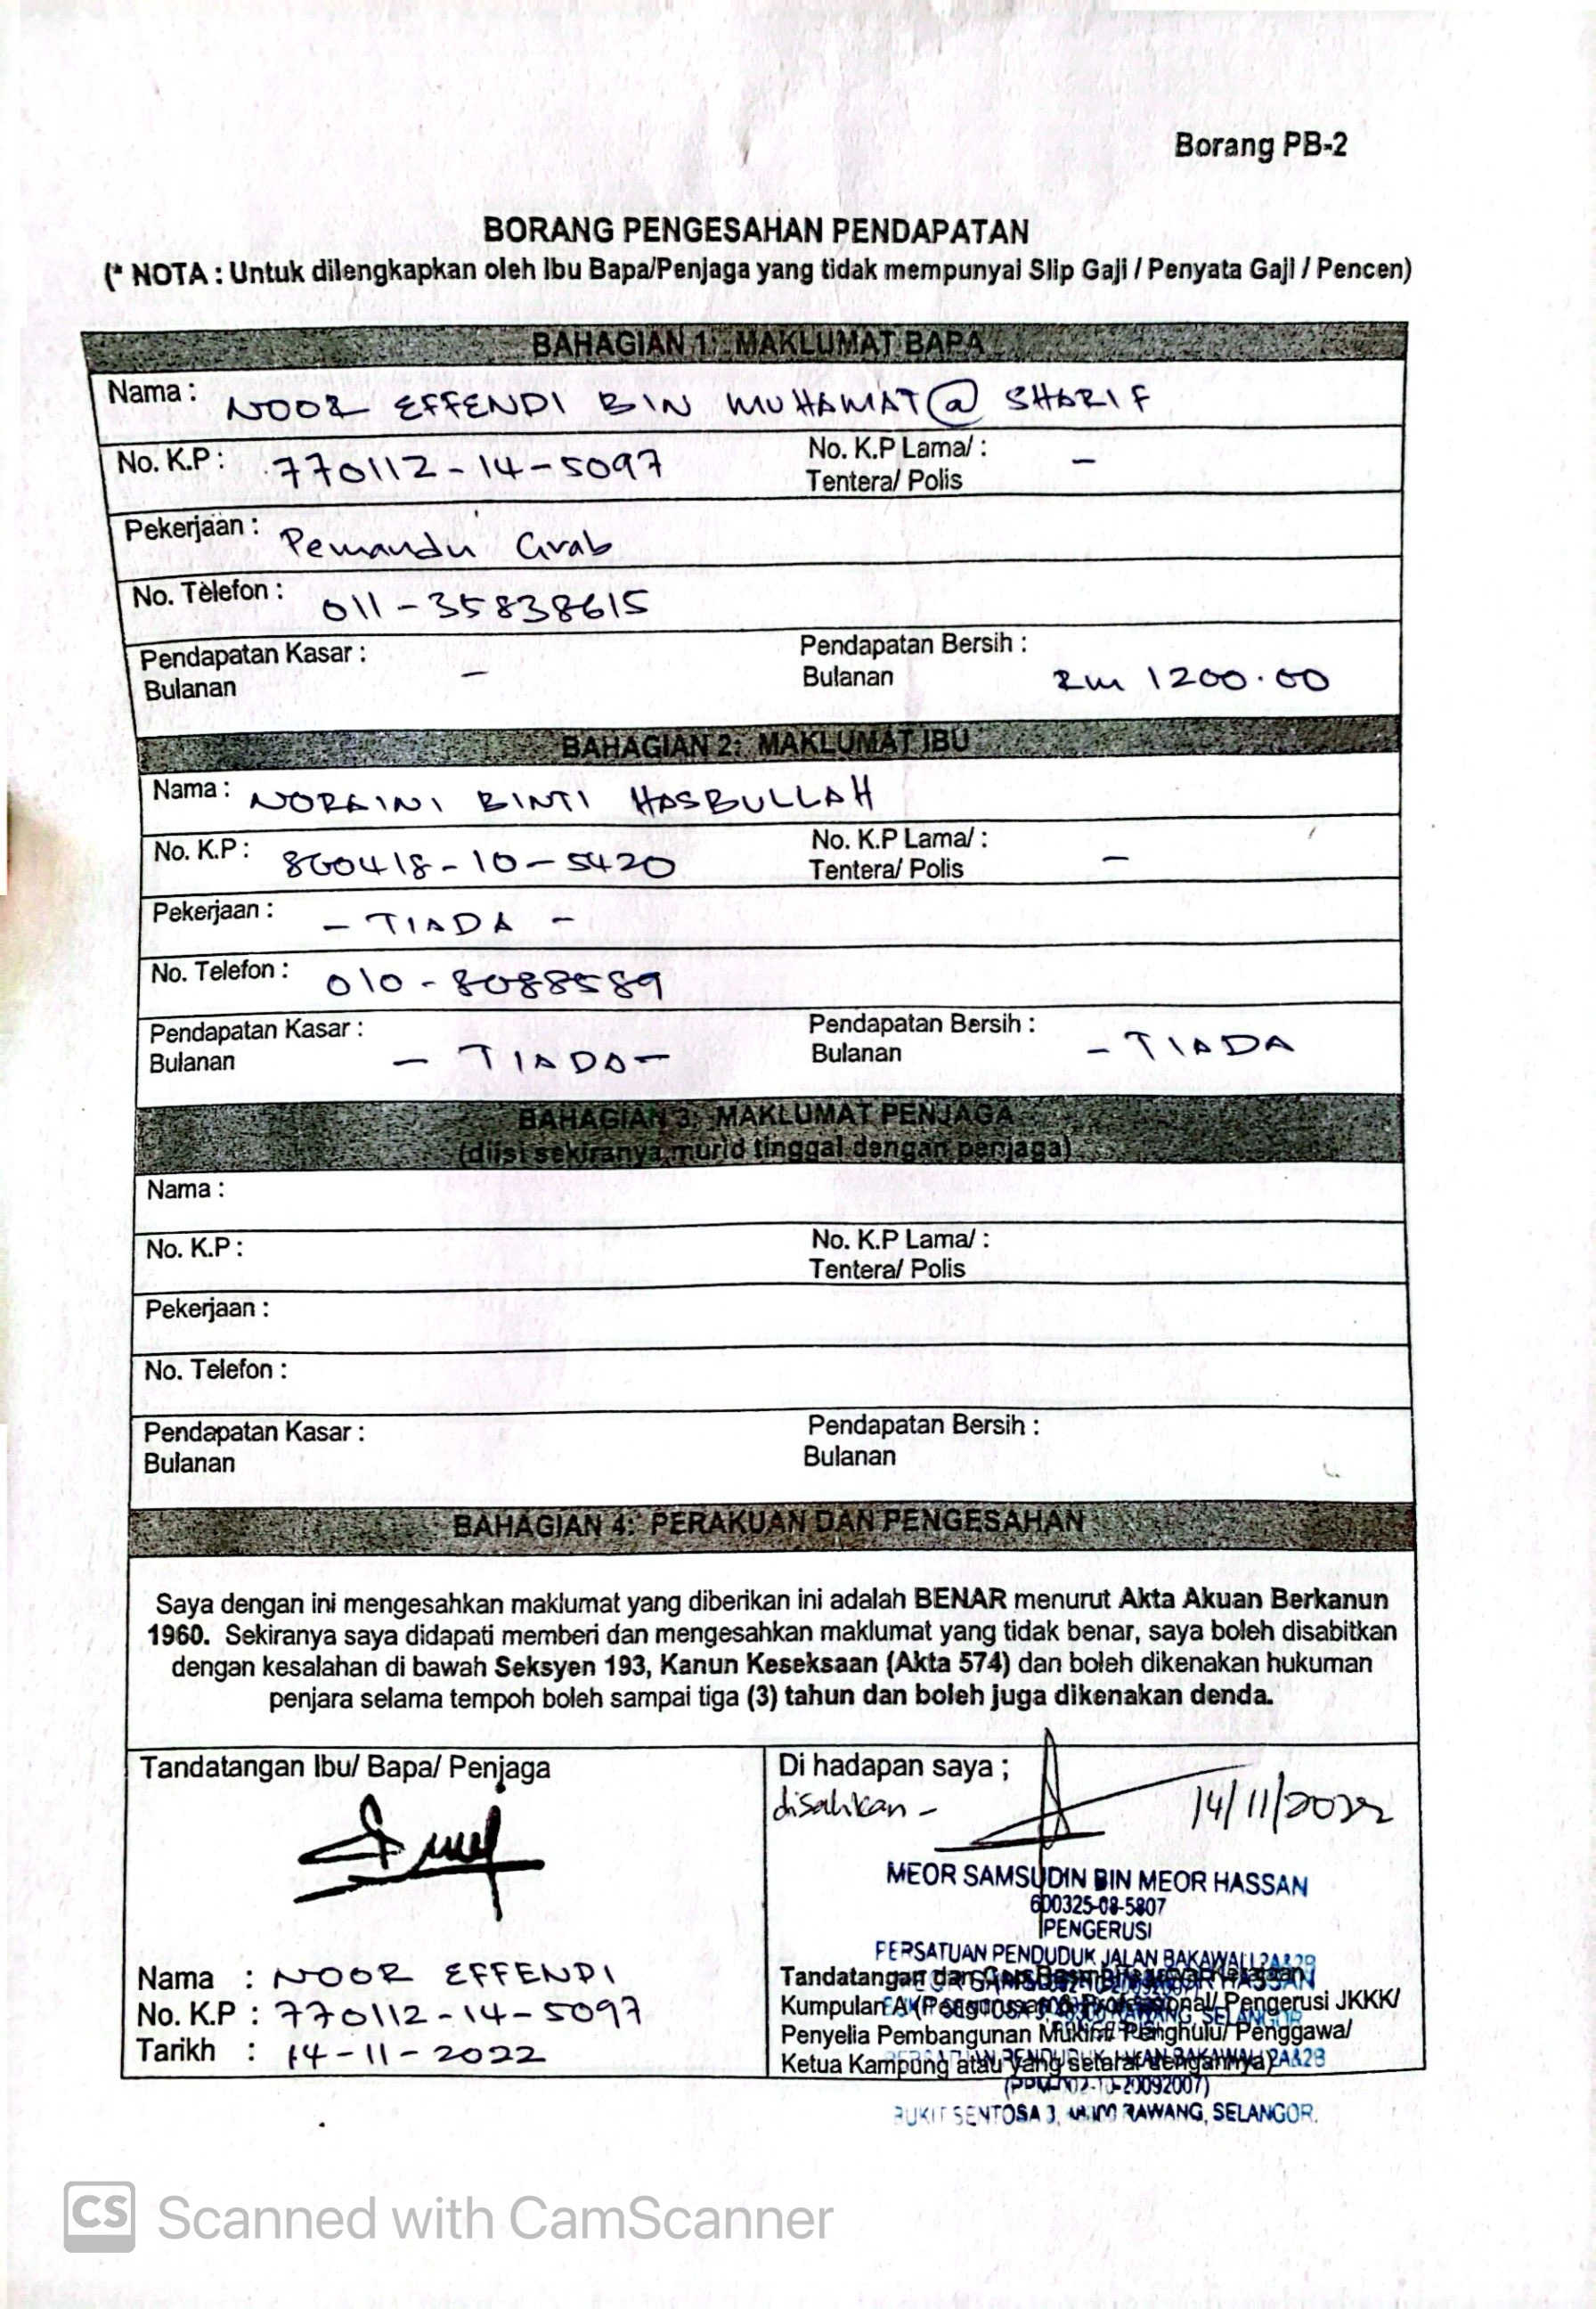 Borang PB-2
BORANG PENGESAHAN PENDAPATAN
(* NOTA : Untuk dilengkapkan oleh Ibu Bapa/Penjaga yang tidak mempunyai Slip Gaji / Penyata Gaji / Pencen)
BAHAGIAN 1: MAKLUMAT BAPA
Nama : NOOR EFFENDI BIN MUHAMAT @ SHARIF
No. K.P : 770112-14-5097 No. K.P Lama/ : -
Tentera/ Polis
Pekerjaan : Pemandu Grab
No. Telefon : 011-35838615
Pendapatan Kasar : - Pendapatan Bersih :
Bulanan Bulanan RM 1200.00
BAHAGIAN 2: MAKLUMAT IBU
Nama : NORAINI BINTI HASBULLAH
No. K.P : 860418-10-5420 No. K.P Lama/ : -
Tentera/ Polis
Pekerjaan : - TIADA -
No. Telefon : 010-8088589
Pendapatan Kasar : Pendapatan Bersih :
Bulanan - TIADA - Bulanan - TIADA
BAHAGIAN 3: MAKLUMAT PENJAGA
(diisi sekiranya murid tinggal dengan penjaga)
Nama :
No. K.P : No. K.P Lama/ :
Tentera/ Polis
Pekerjaan :
No. Telefon :
Pendapatan Kasar : Pendapatan Bersih :
Bulanan Bulanan
BAHAGIAN 4: PERAKUAN DAN PENGESAHAN
Saya dengan ini mengesahkan maklumat yang diberikan ini adalah BENAR menurut Akta Akuan Berkanun
1960. Sekiranya saya didapati memberi dan mengesahkan maklumat yang tidak benar, saya boleh disabitkan
dengan kesalahan di bawah Seksyen 193, Kanun Keseksaan (Akta 574) dan boleh dikenakan hukuman
penjara selama tempoh boleh sampai tiga (3) tahun dan boleh juga dikenakan denda.
Tandatangan Ibu/ Bapa/ Penjaga
Nama : NOOR EFFENDI
No. K.P : 770112-14-5097
Tarikh : 14-11-2022
Di hadapan saya ;
disahkan - 14/11/2022
MEOR SAMSUDIN BIN MEOR HASSAN
600325-08-5807
PENGERUSI
PERSATUAN PENDUDUK JALAN BAKAWALI 2A&2B
Tandatangan dan
Kumpulan A (Pengurusan & Profesional)/ Pengerusi JKKK/
Penyelia Pembangunan Mukim/ Penghulu/ Penggawa/
Ketua Kampung atau yang setaraf dengannya) 2A&2B
(PPM-002-10-20092007)
BUKIT SENTOSA 3, RAWANG, SELANGOR.
CS Scanned with CamScanner